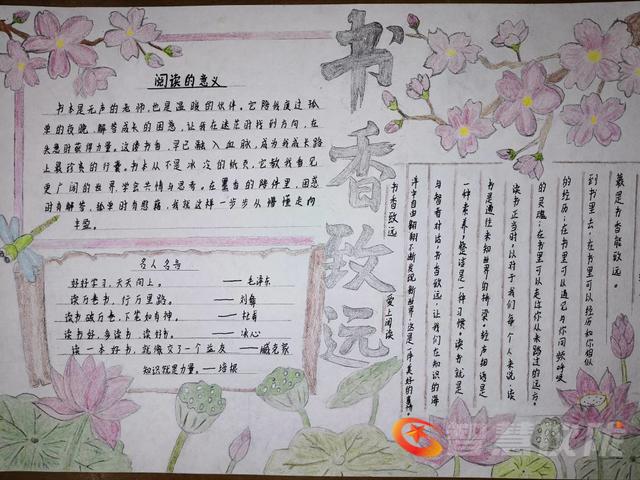 阅读的意义
书本是无声的老师,也是温暖的伙伴。它陪我度过孤
单的夜晚,解答成长的困惑,让我在迷茫时找到方向,在
失意时获得力量。这读书自,早已融入血脉,成为我成长路
上最珍贵的行囊。书本从不是冰冷的纸页,它教我看见
更广阔的世界,学会共情与思考。在墨香的陪伴里,困惑
时有解答,孤单时有慰藉,我就这样一步步从懵懂走向
丰盈。
名人名言
好好学习,天天向上。——毛泽东
读万卷书,行万里路。——刘彝
读书破万卷,下笔如有神。——杜甫
读书好,多读书,读好书。——冰心
读一本好书,就像交了一个益友——臧克家
知识就是力量。——培根
书香致远
最是书香能致远。
到书里去,在书里可以经历如你相似
的经历;在书里可以遇见与你同频呼吸
的灵魂;在书里可以走近你从未路过的远方。
读书正当时。以对于我们每个人来说,读
书是通往未知世界的桥梁。轻声细语是
一种素养,整洁是一种习惯。读书就是
与智者对话。书香致远,让我们在知识的海
洋中自由翱翔,不断发现新世界,这是一件美好的事情。
书香致远 爱上阅读
智慧教从